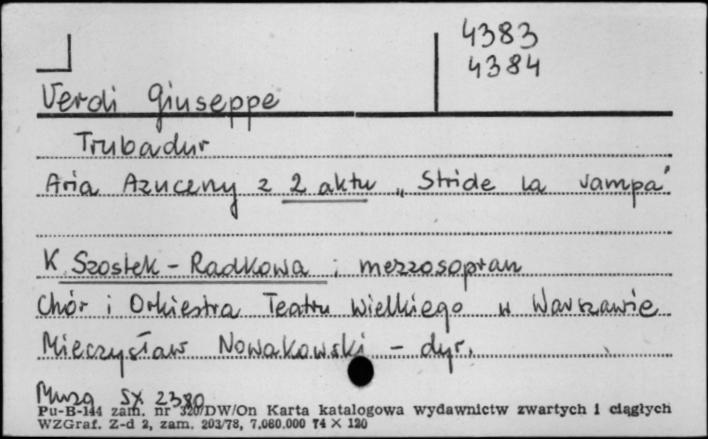 4383
4384
Verdi Giuseppe
Trubadur
Aria Azuceny z 2 aktu „Stride la vampa"
K Szostek-Radkowa ; mezzosopran
Chór i Orkiestra Teatru Wielkiego w Warszawie
Mieczysław Nowakowski - dyr.
Muza SX 2380
Pu-B-144 zam. nr 320/DW/On Karta katalogowa wydawnictw zwartych i ciągłych
WZGraf. Z-d 2, zam. 203/78, 7.080.000 74 X 120